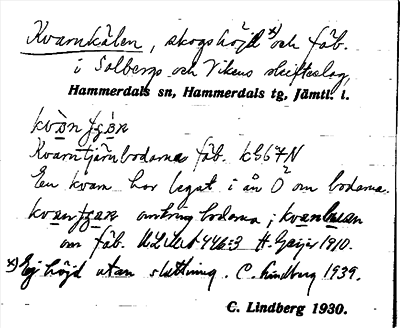 Kvarnkälen, skogshöjd x) och fäb.
i Solbergs och Vikens skifteslag,
Hammerdals sn, Hammerdals tg, Jämtl. l.
Kvarntjärnbodarnas fäb. k367N
En kvarn har legat i ån O² om bodarna.
omkring bodarna;
om fäb. ULMA 446:3 H. Geijer 1910.
x) Ej höjd utan sluttning. C. Lindberg 1939.
C. Lindberg 1930.